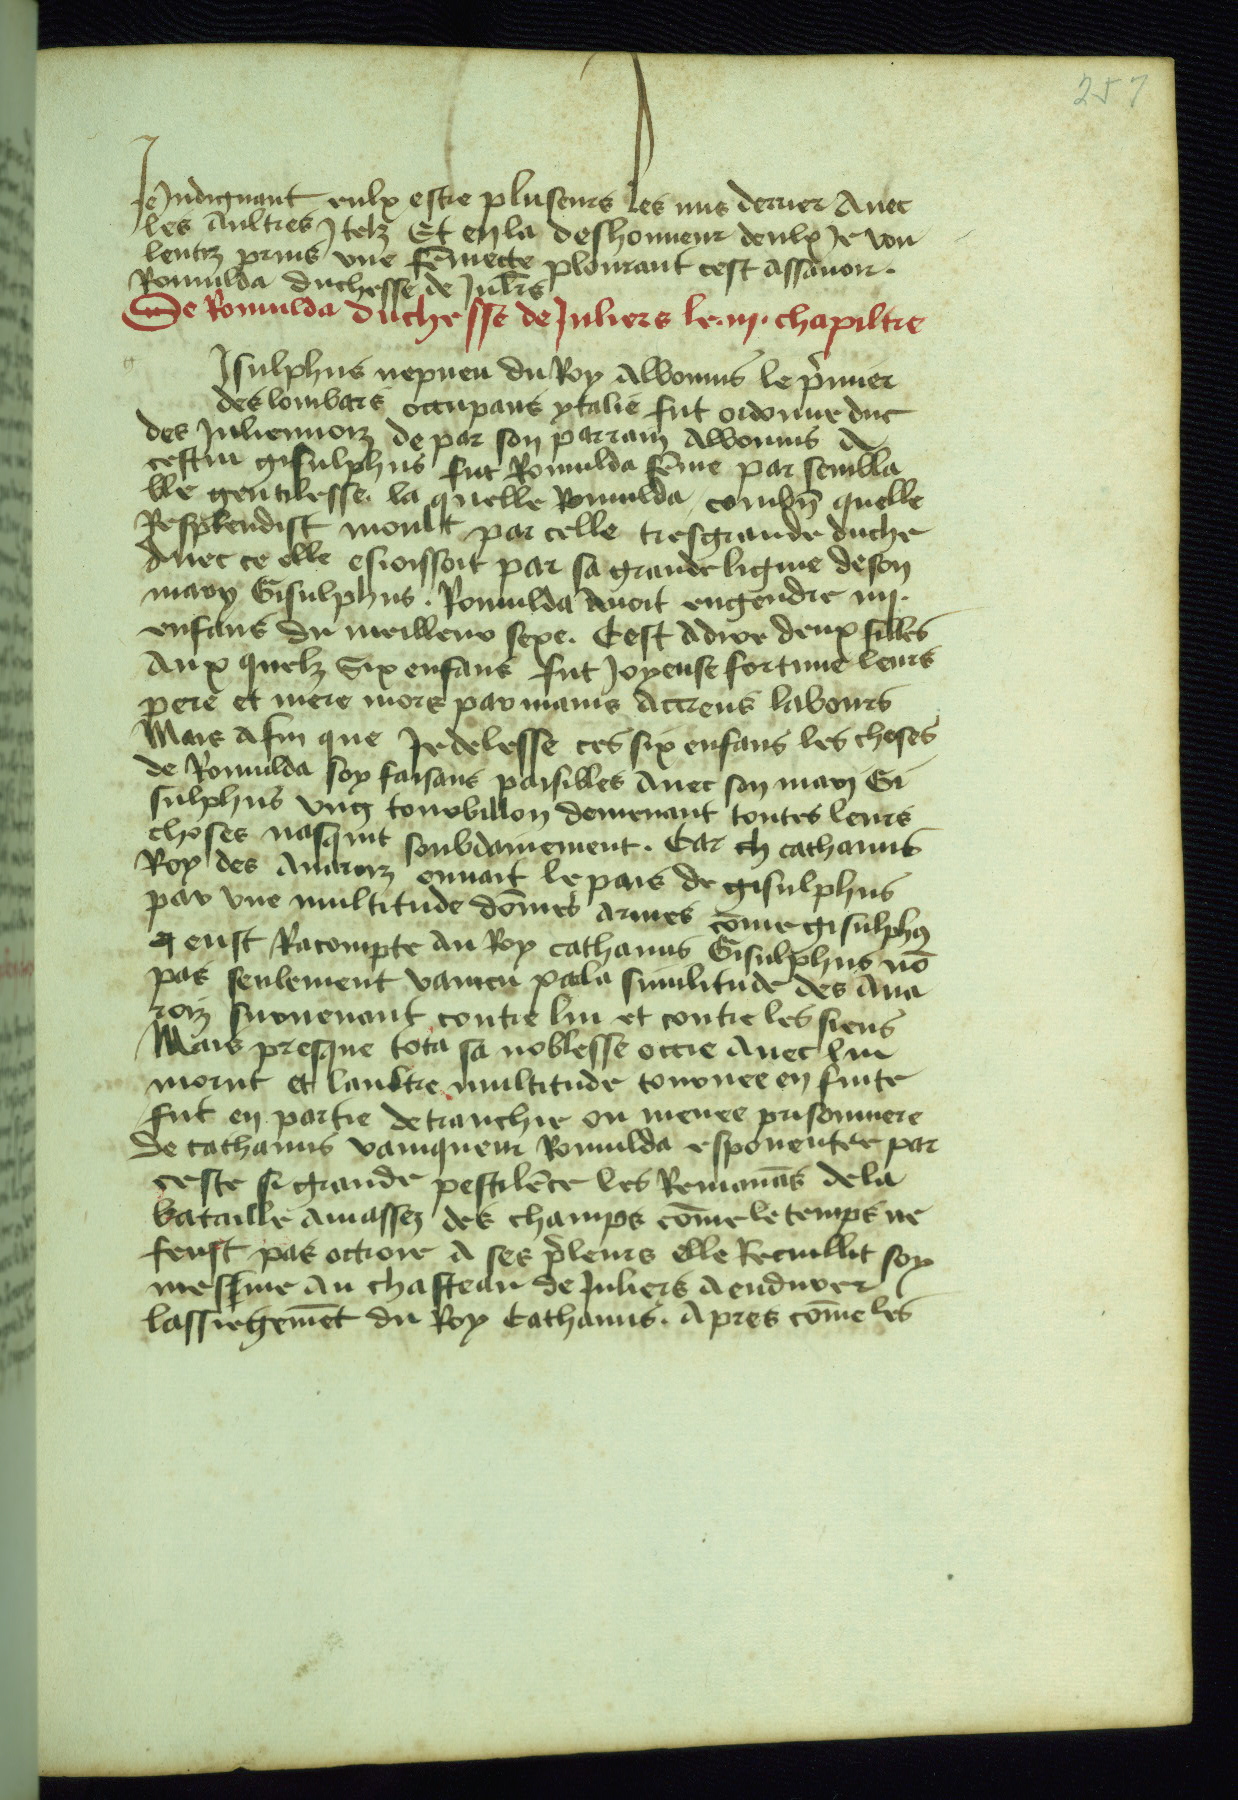 257
Je Indignant eulx estre pluseurs les uns derrier Avec
les Aultres Itelz Et en la deshonneur deulx Je vou
lentrz prins une fēmecte plourant cest Assavoir.
Romulda duchesse de Iulr̄s
De Romulda duchesse de Iuliers le .iij. chapiltre
g Isulphus nepueu du Roy Albonius le p̄mier
des lombars occupans ytalie fut ordonne duc
des Juliennoiz de par son parrain Albonius A
cestui gisulphus fut Romulda fēme par sembla
ble gentilesse. la quelle Romulda combn̄ quelle
Resplendist moult par celle tresgrande duche
Avec ce elle esioissoit par sa grande ligniie de son
mary Gisulphus. Romulda Avoit engendre iiij.
enfans du meilleur sexe. Cest Adire deux filles
Aux quelz Six enfans fut Joyeuse fortune leurs
pere et mere mors par mains Actreus labours
Mais Afin que Je delesse ces six enfans les choses
de Romulda soy faisans paisibles Avec son mary Gi
sulphus ung tourbillon demenant toutes leurs
choses nasquit soubdainement. Car ch cathanus
Roy des Avaroiz envait le pais de gisulphus
par une multitude dōmes armes cōme gisulphꝯ
q eust Racompte Au Roy cathanus Gisulphus nō
pas seulement vaincu pala similitude des Ava
roiz survenant contre lui et contre les siens
Mais presque tota sa noblesse occie Avec lui
morut et laultre multitude tournee en fuite
fut en partie detranchie ou menee prisonniere
de cathanus vainqueur Romulda espouentee par
ceste si grande pestilēce les Remanās de la
bataille Amassez des champs cōme le temps ne
feust pas octroie A ses p̄leurs elle Recuillit soy
mesme Au chasteau de Juliers A endurer
lassiegemēt du Roy Cathanus. Apres cōme les